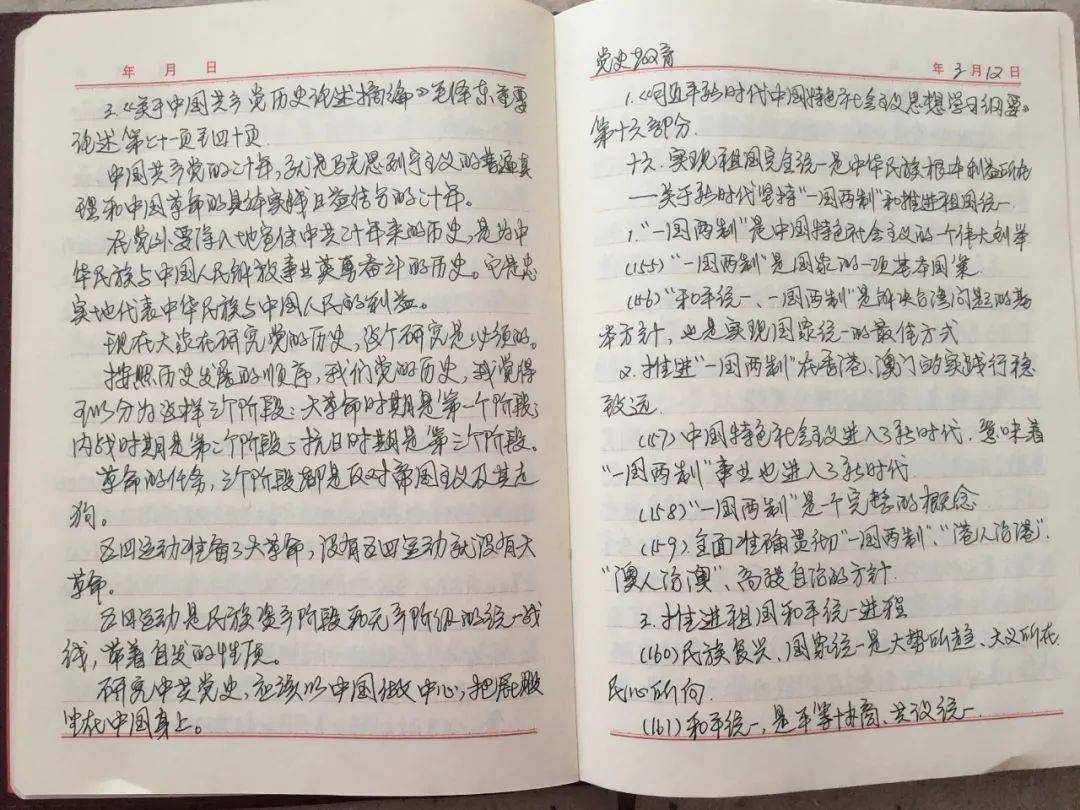 年 月 日
3.《关于中国共产党历史论述摘编》毛泽东重要
论述第二十一页至四十页
中国共产党的二十年,就是马克思列宁主义的普遍真
理和中国革命的具体实践日益结合的二十年。
在党小要深入地宣传中共二十年来的历史,是为中
华民族与中国人民解放事业英勇奋斗的历史。它是忠
实地代表中华民族与中国人民的利益。
现在大家在研究党的历史,这个研究是必须的。
按照历史发展的顺序,我们党的历史,我觉得
可以分为这样三个阶段:大革命时期是第一个阶段;
内战时期是第二个阶段;抗日时期是第三个阶段。
革命的任务,三个阶段都是反对帝国主义及其走
狗。
五四运动准备了大革命,没有五四运动就没有大
革命。
五四运动是民族资产阶段和无产阶级的统一战
线,带着自发的性质。
研究中共党史,应该以中国做中心,把屁股
坐在中国身上。
党史教育
年 3 月 12 日
1.《习近平新时代中国特色社会主义思想学习纲要》
第十六部分
十六.实现祖国完全统一是中华民族根本利益所在
——关于新时代坚持"一国两制"和推进祖国统一
1."一国两制"是中国特色社会主义的一个伟大创举
(155)"一国两制"是国家的一项基本国策
(156)"和平统一、一国两制"是解决台湾问题的基
本方针,也是实现国家统一的最佳方式
2.推进"一国两制"在香港、澳门的实践行稳
致远
(157)中国特色社会主义进入了新时代.意味着
"一国两制"事业也进入了新时代
(158)"一国两制"是一个完整的概念
(159).全面准确贯彻"一国两制"、"港人治港".
"澳人治澳"、高度自治的方针.
3.推进祖国和平统一进程
(160)民族复兴、国家统一是大势所趋、大义所在
民心所向.
(161)和平统一,是平等协商、共议统一.